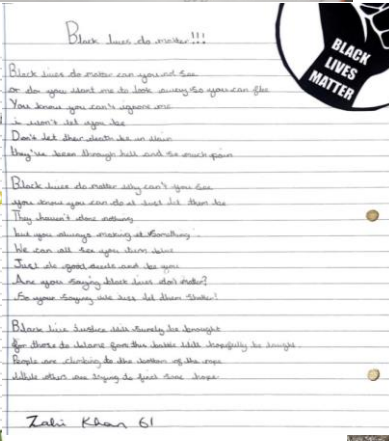 Black lives do matter!!!
BLACK
LIVES
MATTER
Black lives do matter can you not see
or do you want me to look away so you can flee
You know you can't ignore me
i won't let you be
Don't let their death be in vain
they've been through hell and so much pain
Black lives do matter why can't you see
you know you can do it just let them be
They haven't done nothing
but you always making it something
We can all see you turn blue
Just do good deeds and be you
Are you saying black lives don't matter?
So your saying we just let them
Black live justice will surely be brought
for those to blame from this battle will hopefully be taught
People are climbing to the bottom of the rope
While others are trying to find some hope
Zaki Khan 61